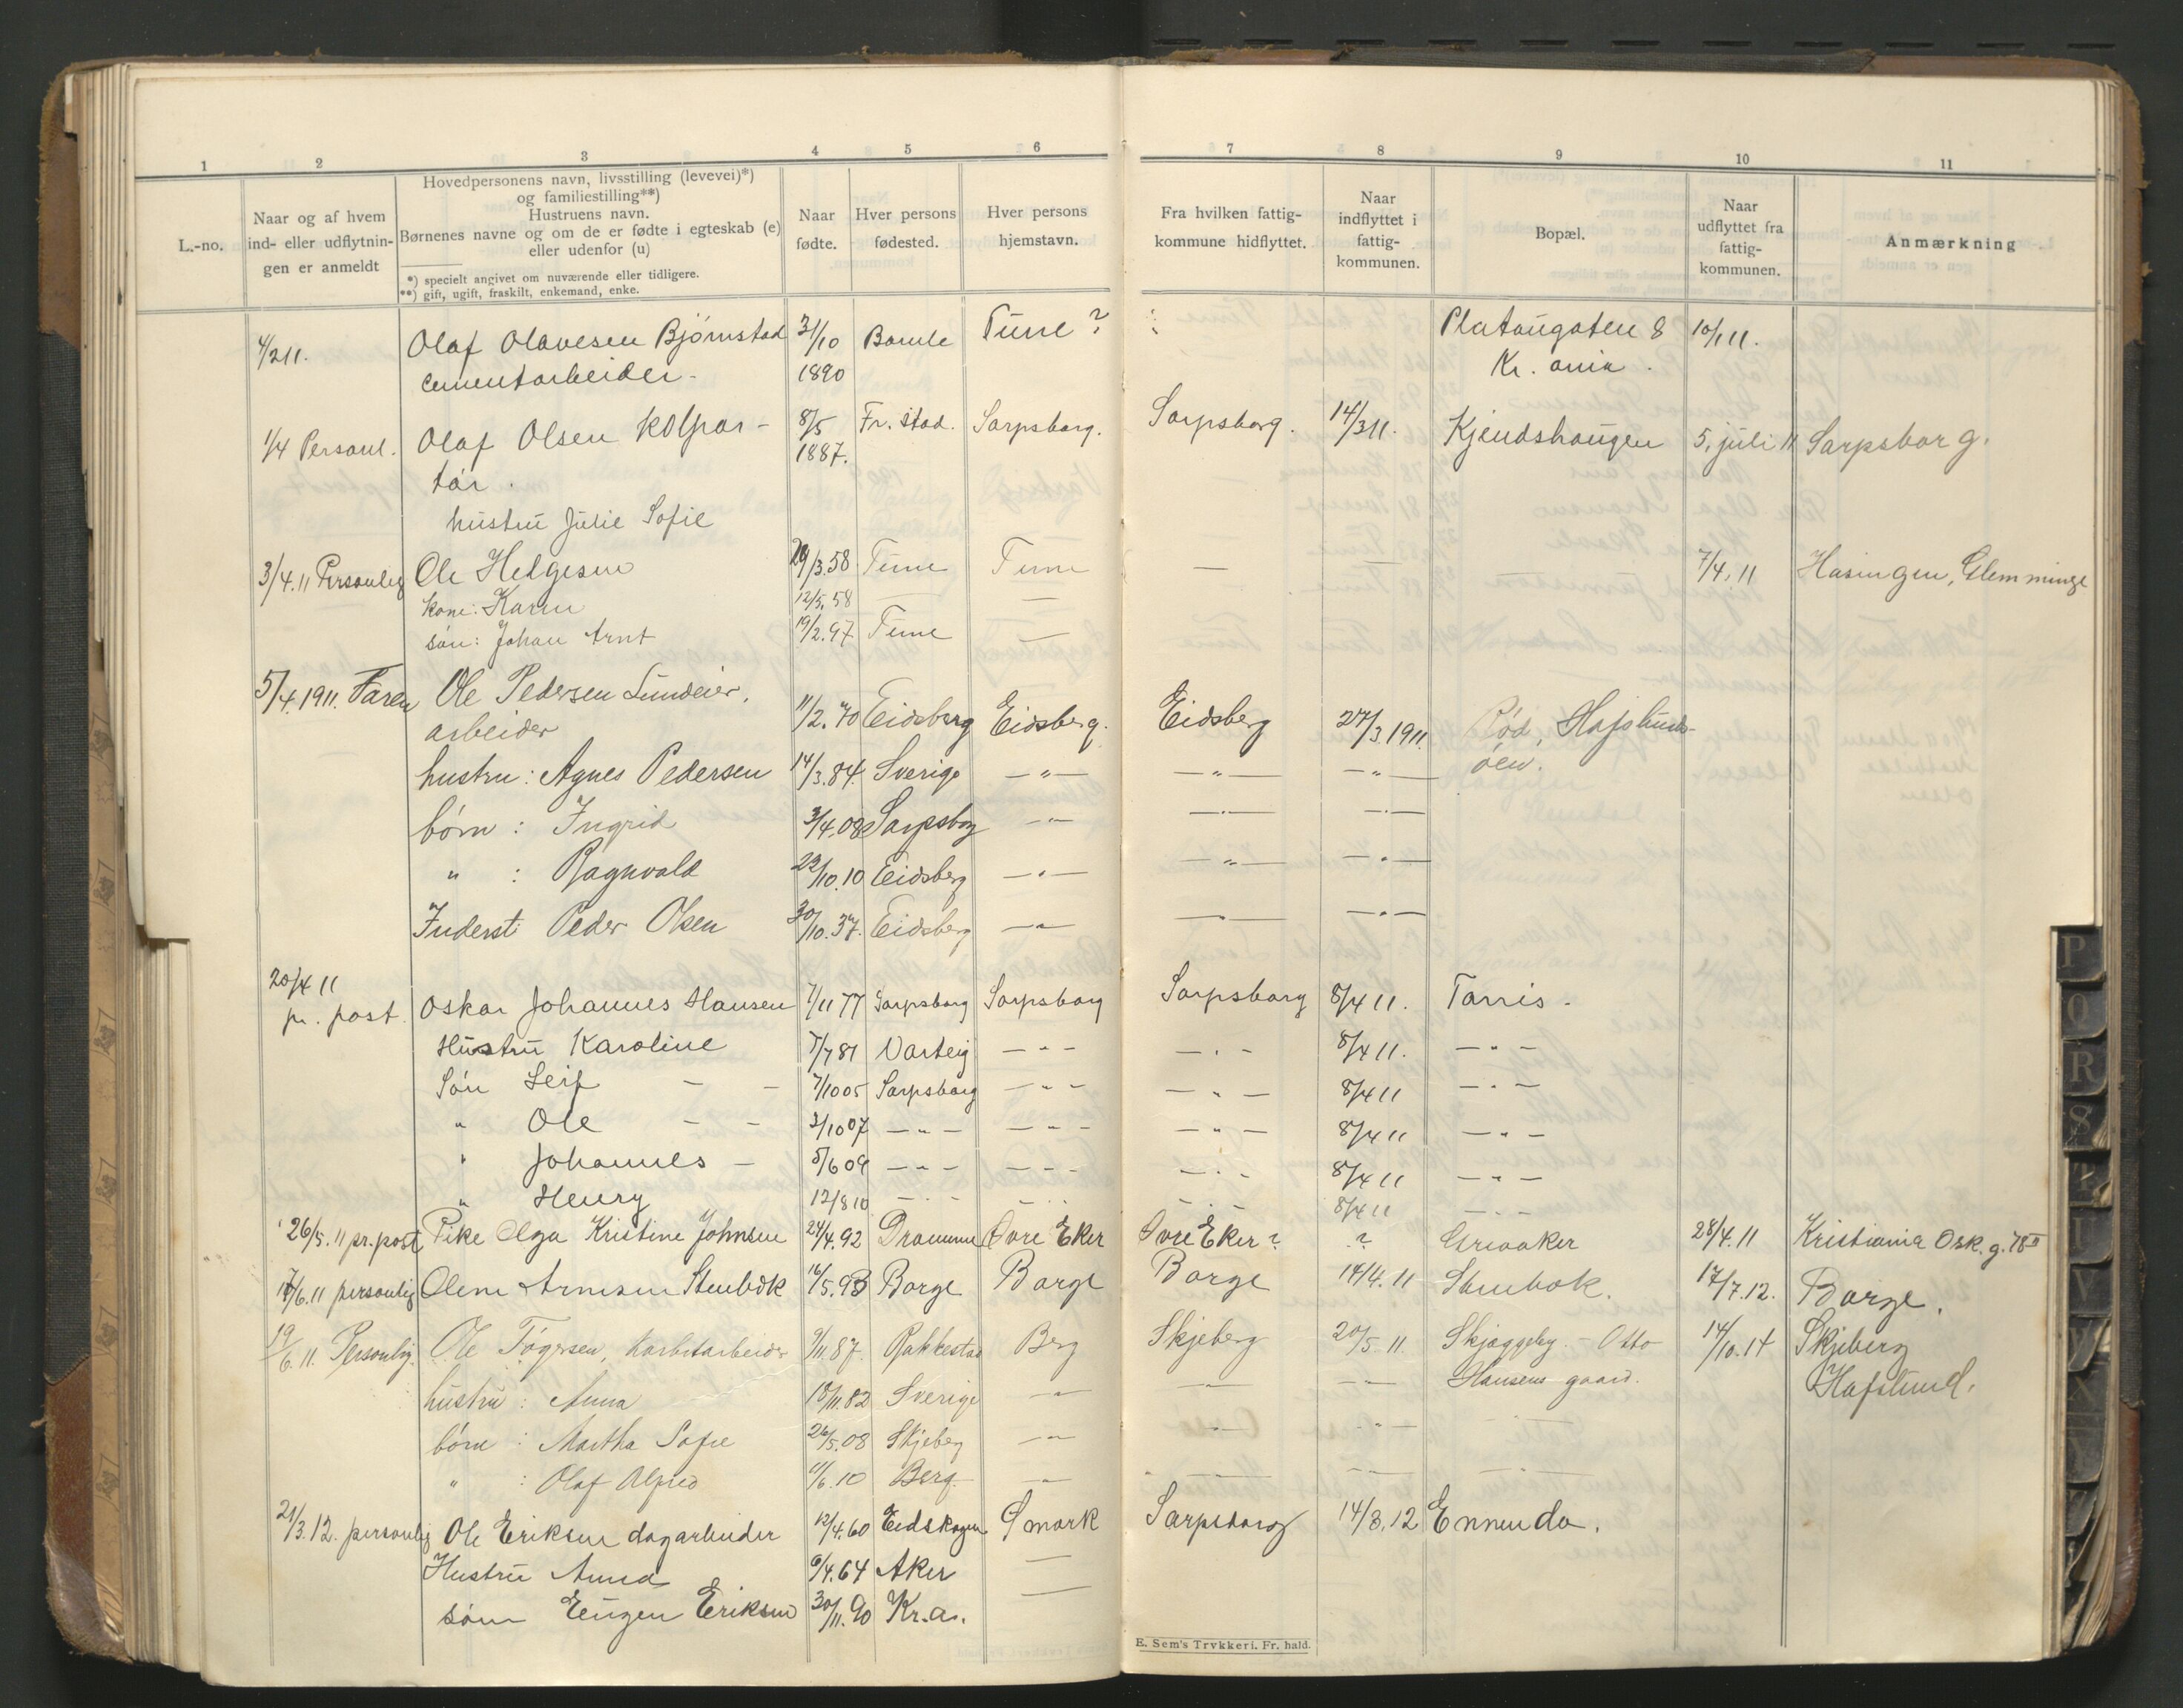 1 2 3 4 5 6 7 8 9 10 11
L.-no.
Naar og af hvem
ind- eller udflytnin-
gen er anmeldt
Hovedpersonens navn, livsstilling (levevei)*)
og familiestilling**)
Hustruens navn.
Børnenes navne og om de er fødte i egteskab (e)
eller udenfor (u)
*) specielt angivet om nuværende eller tidligere.
**) gift, ugift, fraskilt, enkemand, enke.
Naar
fødte.
Hver persons
fødested.
Hver persons
hjemstavn.
Fra hvilken fattig-
kommune hidflyttet.
Naar
indflyttet i
fattig-
kommunen.
Bopæl.
Naar
udflyttet fra
fattig-
kommunen.
Anmærkning
4/2 11. Olaf Olavesen Bjørnstad 31/10 Bamle Tune ? Platougaten 8 10/1 11.
cementarbeider. 1890 Kr. ania.
1/4 Personl. Olaf Olsen Kolpor- 8/5 Fr. stad. Sarpsborg. Sarpsborg. 14/3 11. Kjendshaugen 5. juli 11 Sarpsborg.
tør. 1887.
hustru Julie Sofie
3/4.11 Personlig Ole Helgesen 29/3.58 Tune Tune — — — 7/4.11 Hasingen, Glemminge
kone: Karen 12/5.58 — —
søn: Johan Arnt 19/2.97 Tune —
5/4.1911. Faren Ole Pedersen Lundeier,
arbeider 11/2.70 Eidsberg Eidsberg. Eidsberg 27/3.1911. Rød, Hafslunds-
øen.
hustru: Agnes Pedersen 14/3.84. Sverige —"— —"— —"—
børn: Ingrid 3/4.08 Sarpsborg —"— —"— —"—
" : Ragnvald 23/10.10 Eidsberg —"— —"— —"—
Inderst: Peder Olsen 30/10.37. Eidsberg —"— —"— —"—
20/4 11
pr. post. Oskar Johannes Hansen 7/11 77 Sarpsborg Sarpsborg Sarpsborg 8/4 11. Tarris.
Hustru Karoline 7/7 81 Varteig —"— —"— 8/4 11. —"—
Søn Leif — — 7/10 05 Sarpsborg —"— —"— 8/4 11 —"—
" Ole — — 3/10 07 —"— —"— —"— 8/4 11 —"—
" Johannes — 5/6 09 —"— —"— —"— 8/4 11 —"—
" Henry 12/8 10 —"— —"— —"— 8/4 11 —"—
26/5.11 pr. post Pike Olga Kristine Johnsen 24/4.92 Drammen Øvre Eker Øvre Eker ? ? Greaaker 28/4.11 Kristiania Osk. g. 78 II
17/6.11 personlig Olene Arnesen Stenbæk 16/5.93 Borge Borge Borge 14/4.11 Stenbæk. 17/7.12. Borge.
19/6.11. Personlig. Ole Tøgersen, Karbitarbeider 9/11.87. Rakkestad Berg Skjeberg 20/5.11. Skjeggeby. - Otto 14/10.14 Skjeberg
hustru: Anna 18/11.82 Sverige —"— —"— —"— Hansens gaard. Hafslund.
børn: Martha Sofie 26/5.08 Skjeberg —"— —"— —"— —"—
" : Olaf Alfred 6/6.10 Berg. —"— —"— —"— —"—
21/3.12. personlig Ole Eriksen dagarbeider 12/4.60 Eidskogen Ømark Sarpsborg 14/3.12 Ennenda.
Hustru Anna 9/4.64 Aker —
søn Eugen Eriksen 30/11.90 Kr.a. —
E. Sem's Trykkeri. Fr. hald.
P
Q
R
S